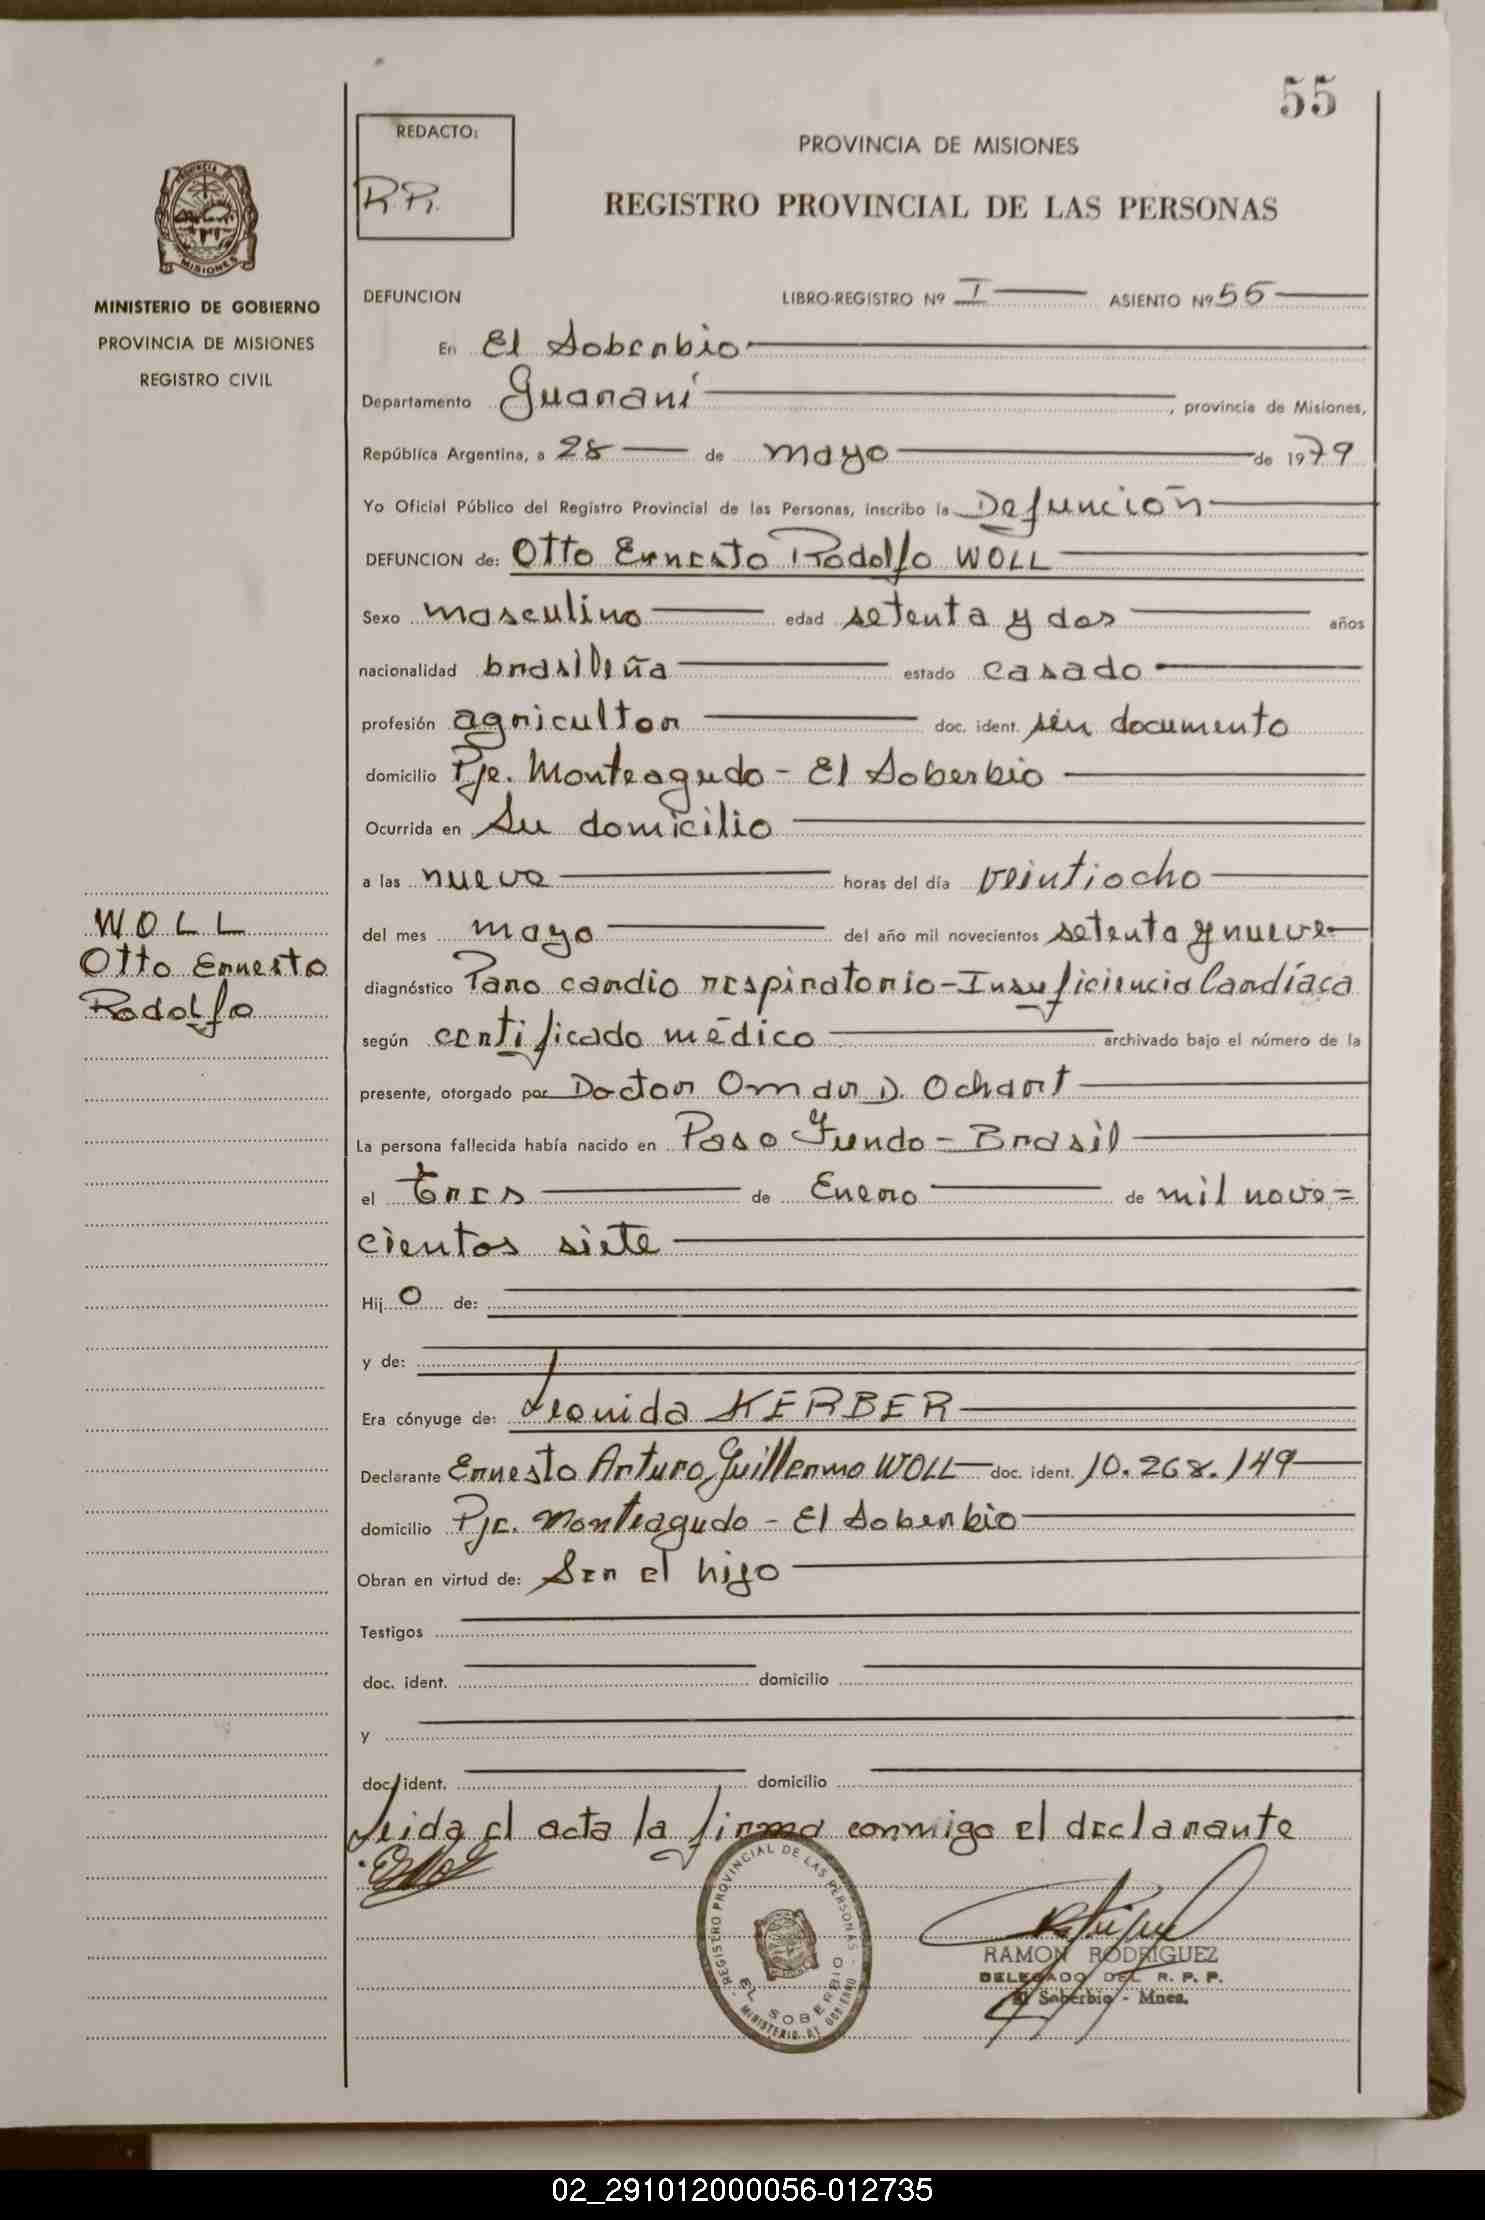 55
REDACTO:
R.R.
PROVINCIA DE MISIONES
REGISTRO PROVINCIAL DE LAS PERSONAS
PROVINCIA DE
MISIONES
MINISTERIO DE GOBIERNO
PROVINCIA DE MISIONES
REGISTRO CIVIL
DEFUNCION LIBRO-REGISTRO Nº I ASIENTO Nº 55
En El Soberbio
Departamento Guaraní, provincia de Misiones,
República Argentina, a 28 de mayo de 1979
Yo Oficial Público del Registro Provincial de las Personas, inscribo la Defunción
DEFUNCION de: Otto Ernesto Rodolfo WOLL
Sexo masculino edad setenta y dos años
nacionalidad brasileña estado casado
profesión agricultor doc. ident. sin documento
domicilio Pje. Monteagudo - El Soberbio
Ocurrida en Su domicilio
a las nueve horas del día veintiocho
WOLL
Otto Ernesto
Rodolfo
del mes mayo del año mil novecientos setenta y nueve
diagnóstico Paro cardio respiratorio - Insuficiencia Cardíaca
según certificado médico archivado bajo el número de la
presente, otorgado por Doctor Omar D. Ochart
La persona fallecida había nacido en Paso Fundo - Brasil
el tres de Enero de mil nove=
cientos siete
Hij o de:
y de:
Era cónyuge de: Leonida KERBER
Declarante Ernesto Arturo Guillermo WOLL doc. ident. 10.268.149
domicilio Pje. Monteagudo - El Soberbio
Obran en virtud de: Ser el hijo
Testigos
doc. ident. domicilio
y
doc. ident. domicilio
Leida el acta la firma conmigo el declarante
REGISTRO PROVINCIAL DE LAS PERSONAS
EL SOBERBIO
MINISTERIO DE GOBIERNO
RAMON RODRIGUEZ
DELEGADO DEL R. P. P.
El Soberbio - Mnes.
02_291012000056-012735